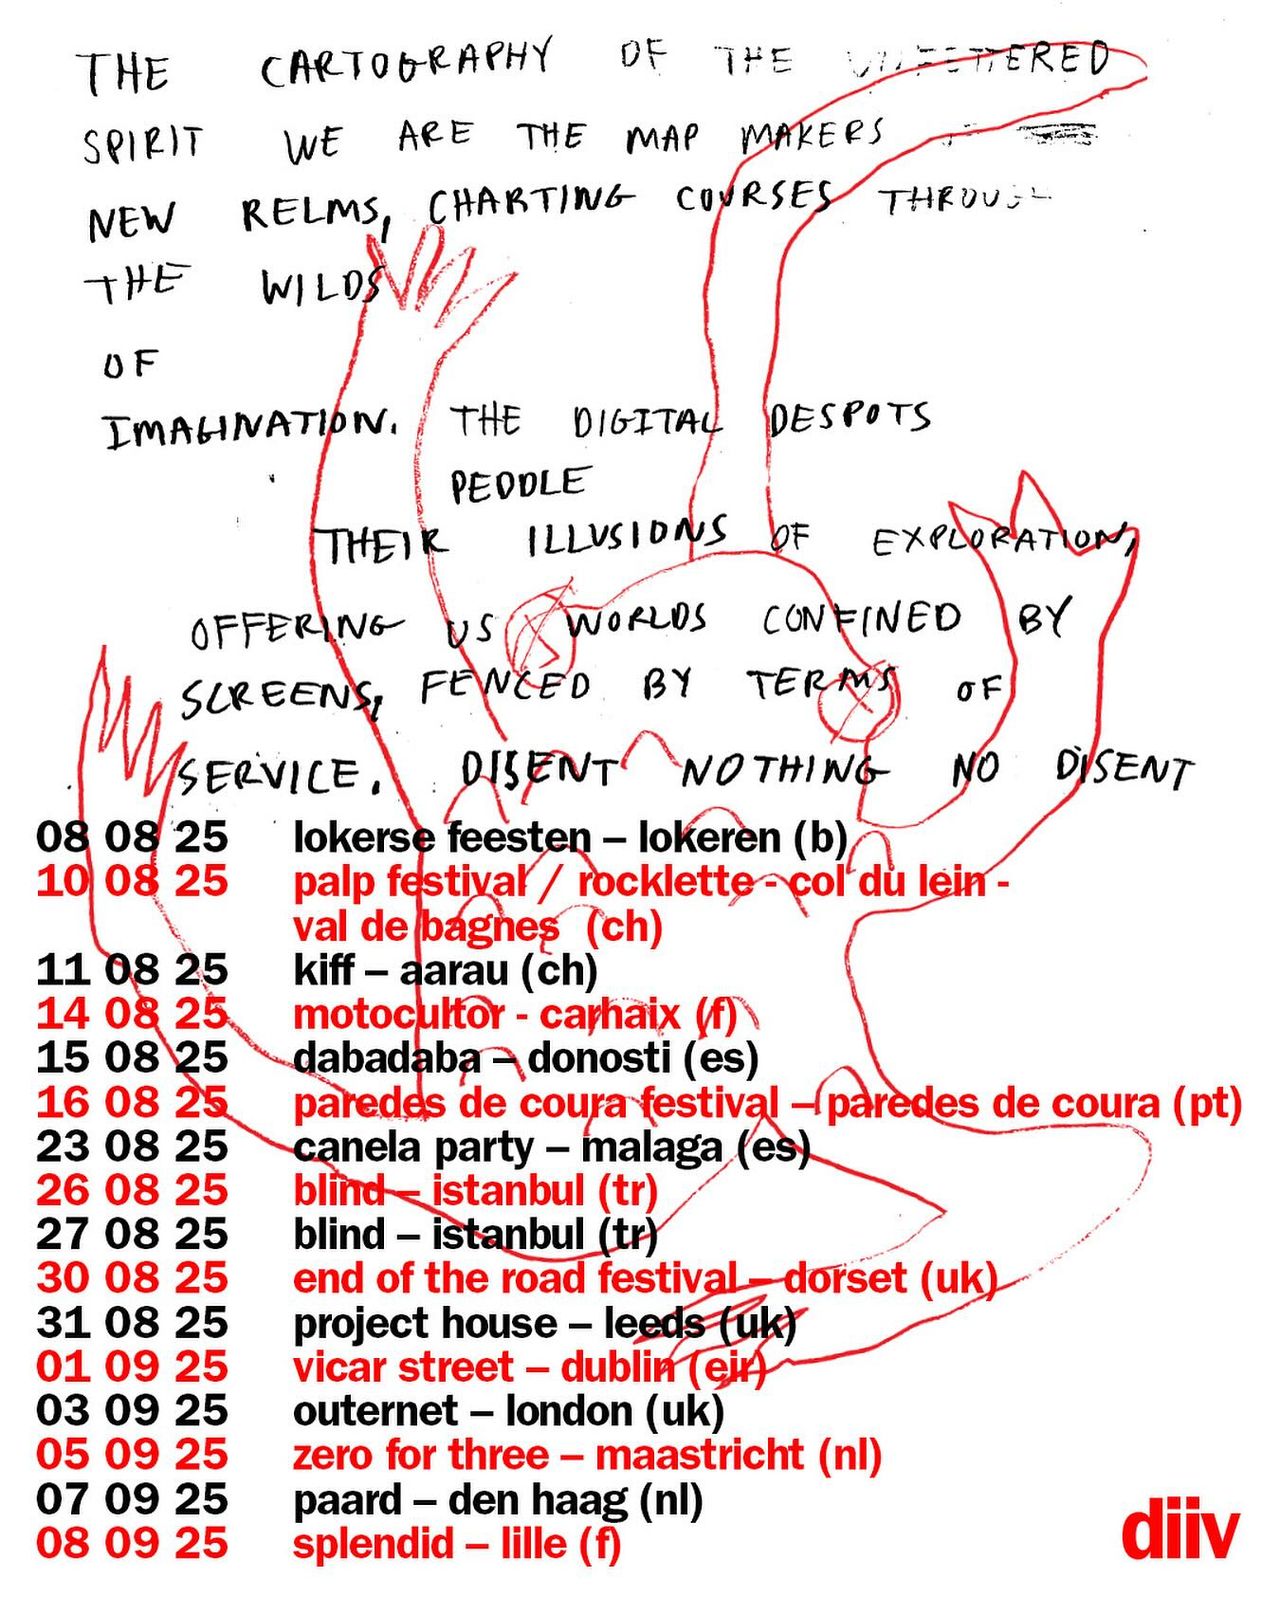 THE CARTOGRAPHY OF THE UNFETTERED
SPIRIT WE ARE THE MAP MAKERS
NEW RELMS, CHARTING COURSES THROUGH
THE WILDS
OF
IMAGINATION. THE DIGITAL DESPOTS
PEDDLE
THEIR ILLUSIONS OF EXPLORATION,
OFFERING US WORLDS CONFINED BY
SCREENS, FENCED BY TERMS OF
SERVICE. DISENT NOTHING NO DISENT
08 08 25 lokerse feesten – lokeren (b)
10 08 25 palp festival / rocklette - col du lein -
val de bagnes (ch)
11 08 25 kiff – aarau (ch)
14 08 25 motocultor - carhaix (f)
15 08 25 dabadaba – donosti (es)
16 08 25 paredes de coura festival – paredes de coura (pt)
23 08 25 canela party – malaga (es)
26 08 25 blind – istanbul (tr)
27 08 25 blind – istanbul (tr)
30 08 25 end of the road festival – dorset (uk)
31 08 25 project house – leeds (uk)
01 09 25 vicar street – dublin (eir)
03 09 25 outernet – london (uk)
05 09 25 zero for three – maastricht (nl)
07 09 25 paard – den haag (nl)
08 09 25 splendid – lille (f)
diiv